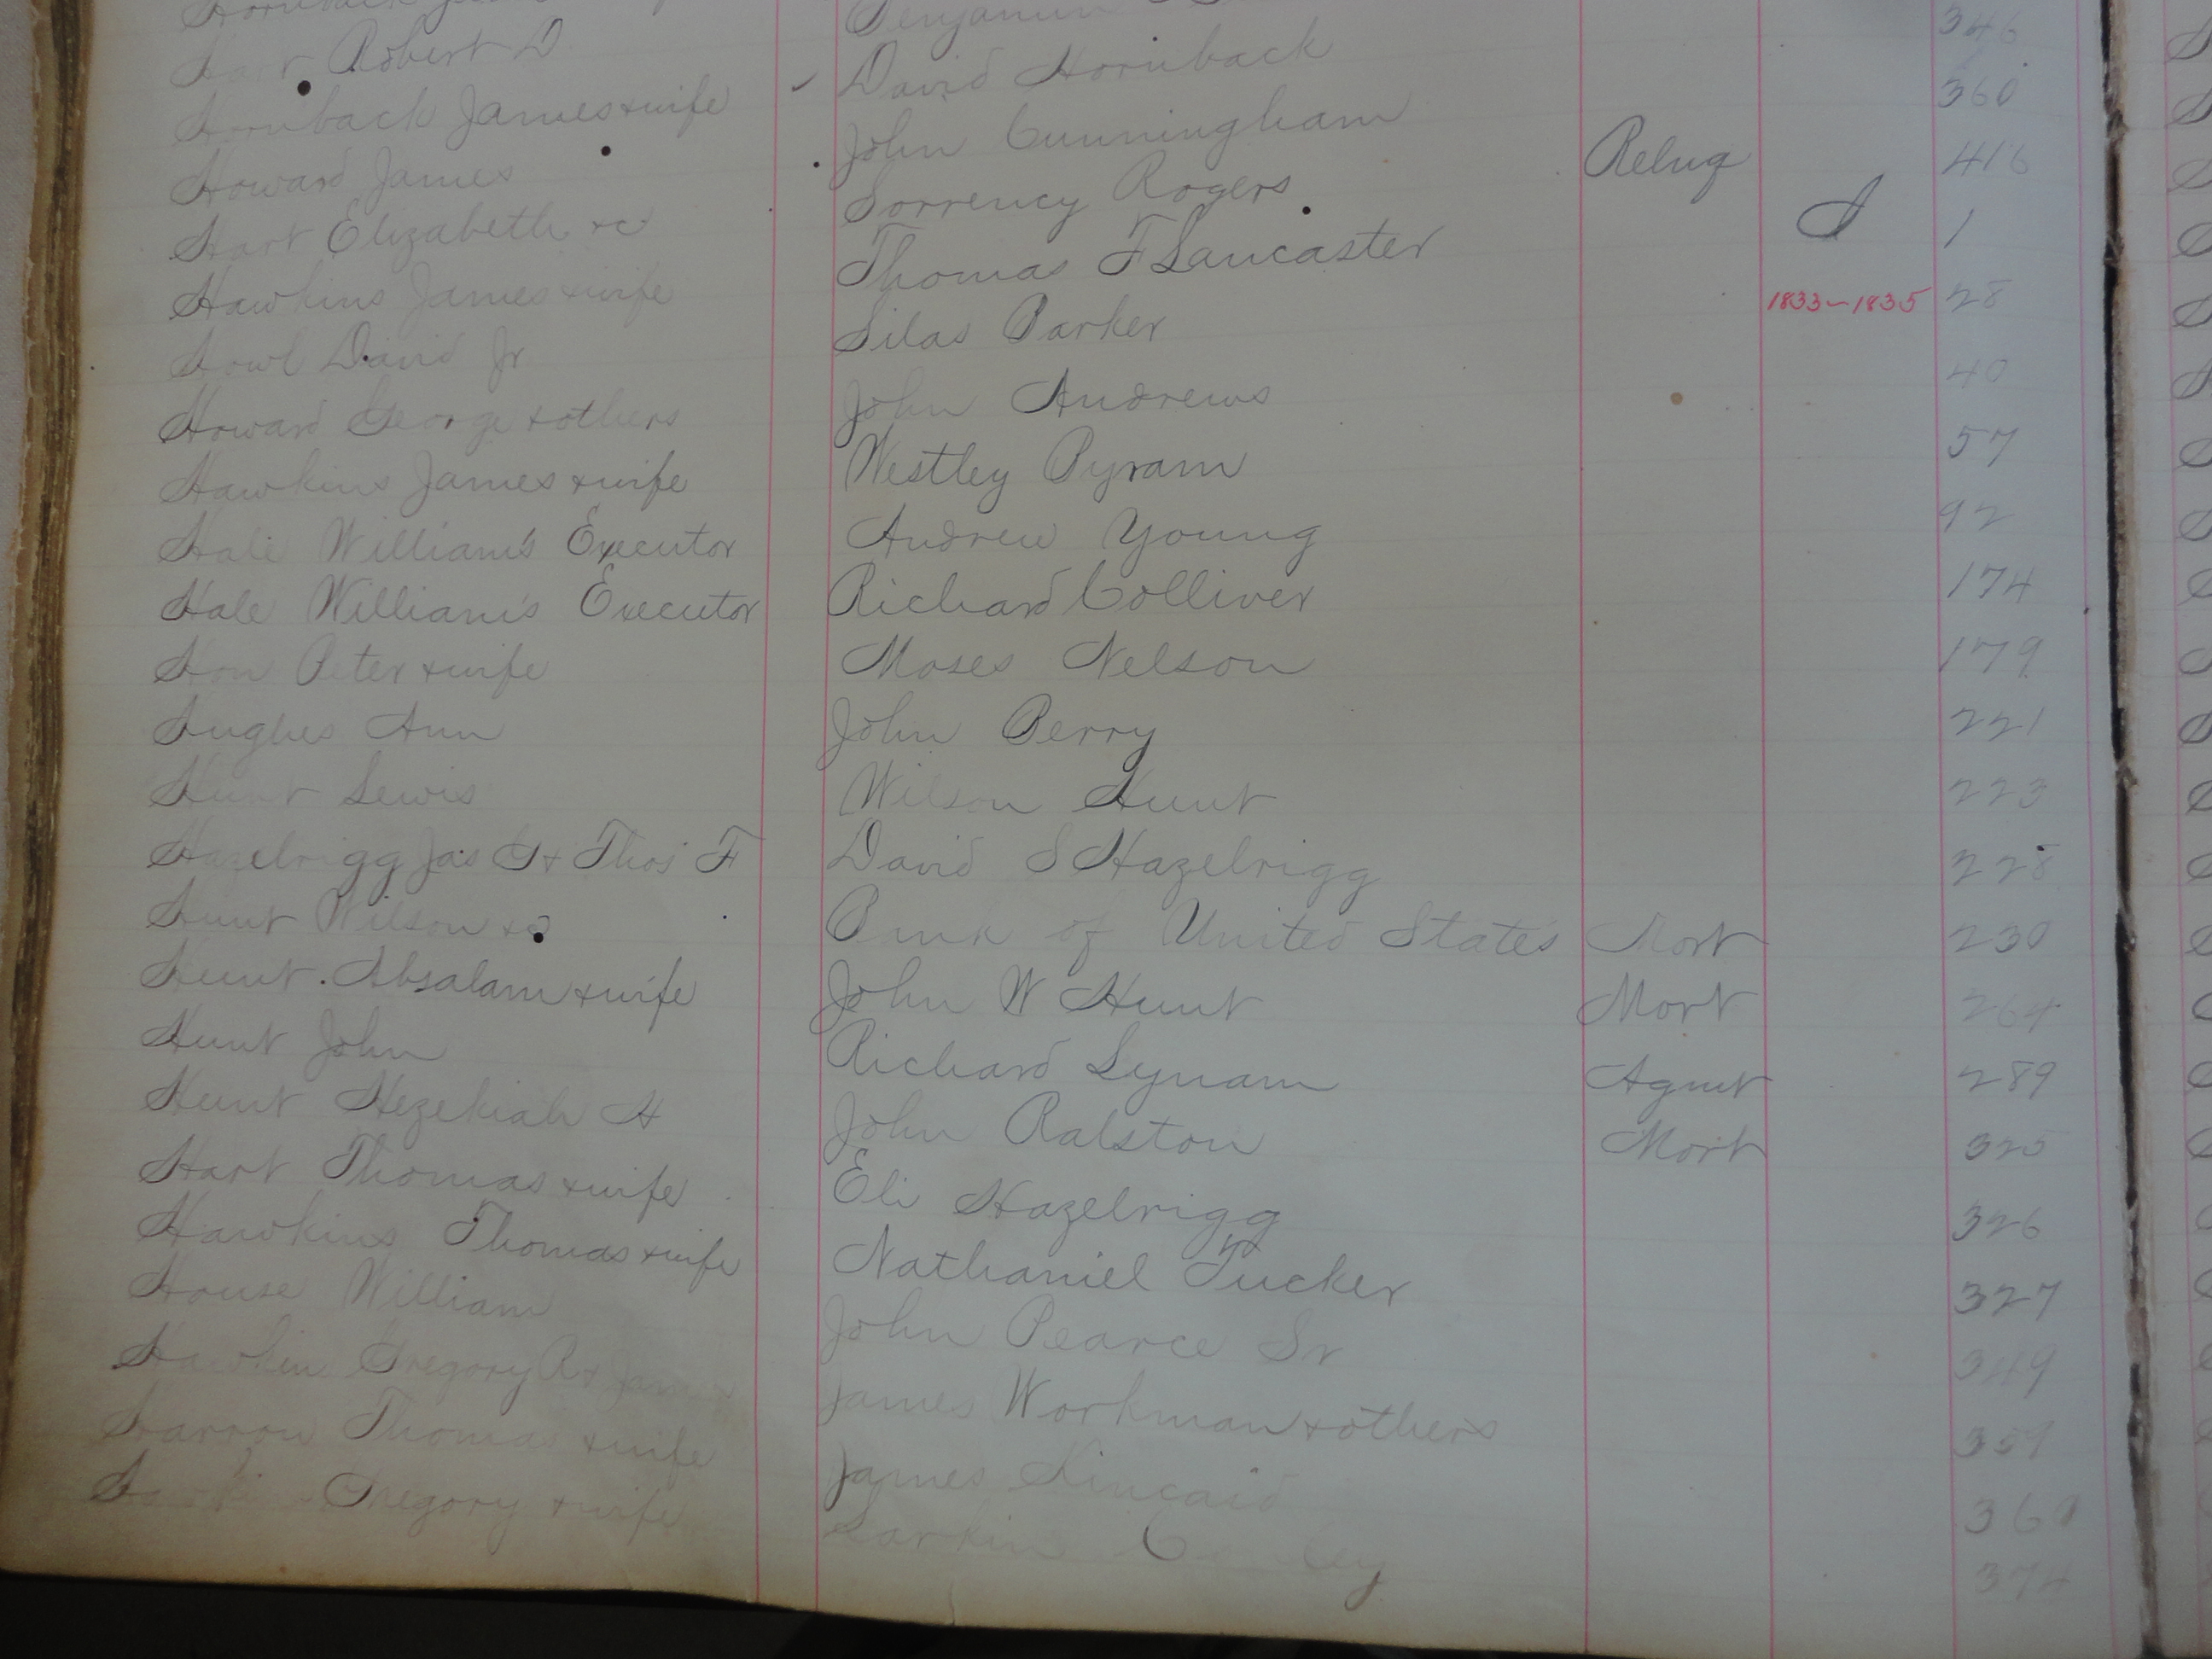 Hart Robert D Benjamin
Hornback James & wife David Hornback 346
Howard James John Cunningham 360
Hart Elizabeth &c Sorrency Rogers Relinq 416
Hawkins James & wife Thomas F Lancaster 1
Howl David Jr Silas Parker 1833-1835 28
Howard George & others John Andrews 40
Hawkins James & wife Westley Pyram 57
Hale William's Executor Andrew Young 92
Hale William's Executor Richard Colliver 174
Hon Peter & wife Moses Nelson 179
Hughes Ann John Berry 221
Hunt Lewis Wilson Hunt 223
Hazelrigg Jas G & Thos F David S Hazelrigg 228
Hunt Wilson &c Bank of United States Mort 230
Hunt Absalam & wife John W Hunt Mort 264
Hunt John Richard Lynam Agmt 289
Hunt Hezekiah H John Ralston Mort 325
Hart Thomas & wife Eli Hazelrigg 326
Hawkins Thomas & wife Nathaniel Tucker 327
House William John Pearce Sr 349
Hawkins Gregory R & James Workman & others
Harrow Thomas & wife James Kincaid
Gregory & wife Larkin 374